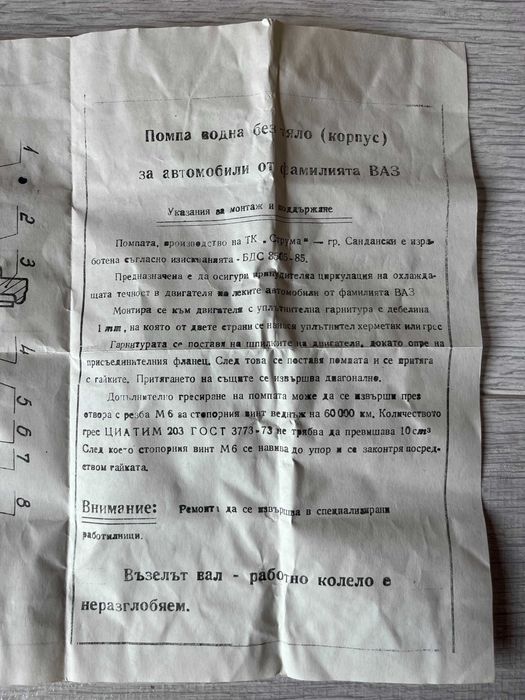 Помпа водна без тяло (корпус)
за автомобили от фамилията ВАЗ
Указания за монтаж и поддържане
Помпата, производство на ТК „Струма" — гр. Сандански е изра-
ботена съгласно изискванията - БДС 8505-85.
Предназначена е да осигури принудителна циркулация на охлажда-
щата течност в двигателя на леките автомобили от фамилията ВАЗ
Монтира се към двигателя с уплътнителна гарнитура с дебелина
1 mm, на която от двете страни се нанася уплътнител херметик или грес
Гарнитурата се поставя на шпилките на двигателя, докато опре на
присъединителния фланец. След това се поставя помпата и се притяга
с гайките. Притягането на същите се извършва диагонално.
Допълнително гресиране на помпата може да се извърши през
отвора с резба М6 за стопорния винт веднъж на 60 000 км. Количеството
грес ЦИАТИМ 203 ГОСТ 3773-73 не трябва да превишава 10 cm3
След което стопорния винт М6 се навива до упор и се законтря посред-
ством гайката.
Внимание: Ремонта да се извършва в специализирани
работилници.
Възелът вал - работно колело е
неразглобяем.
1
2
3
4
5
6
7
8